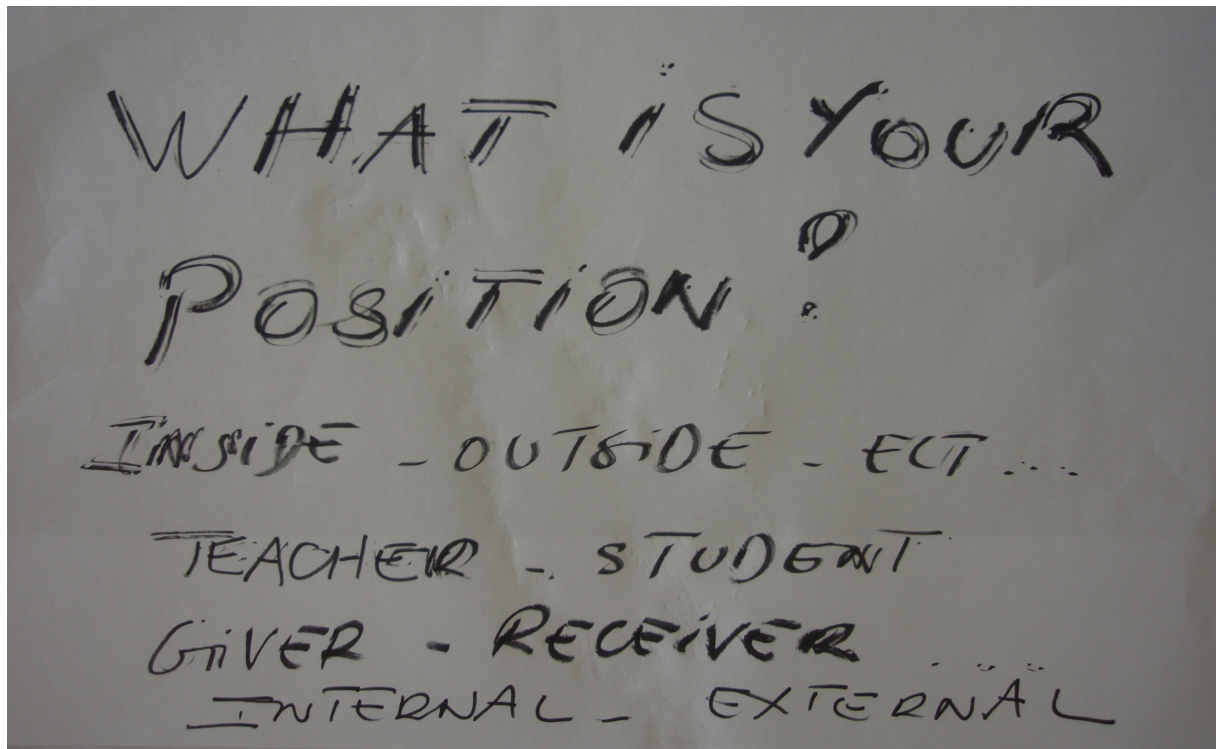 WHAT iS YOUR
POSiTiON?
INSiDE - OUTSiDE - ECT....
TEACHER - STUDENT
GiVER - RECEiVER ....
INTERNAL - EXTERNAL